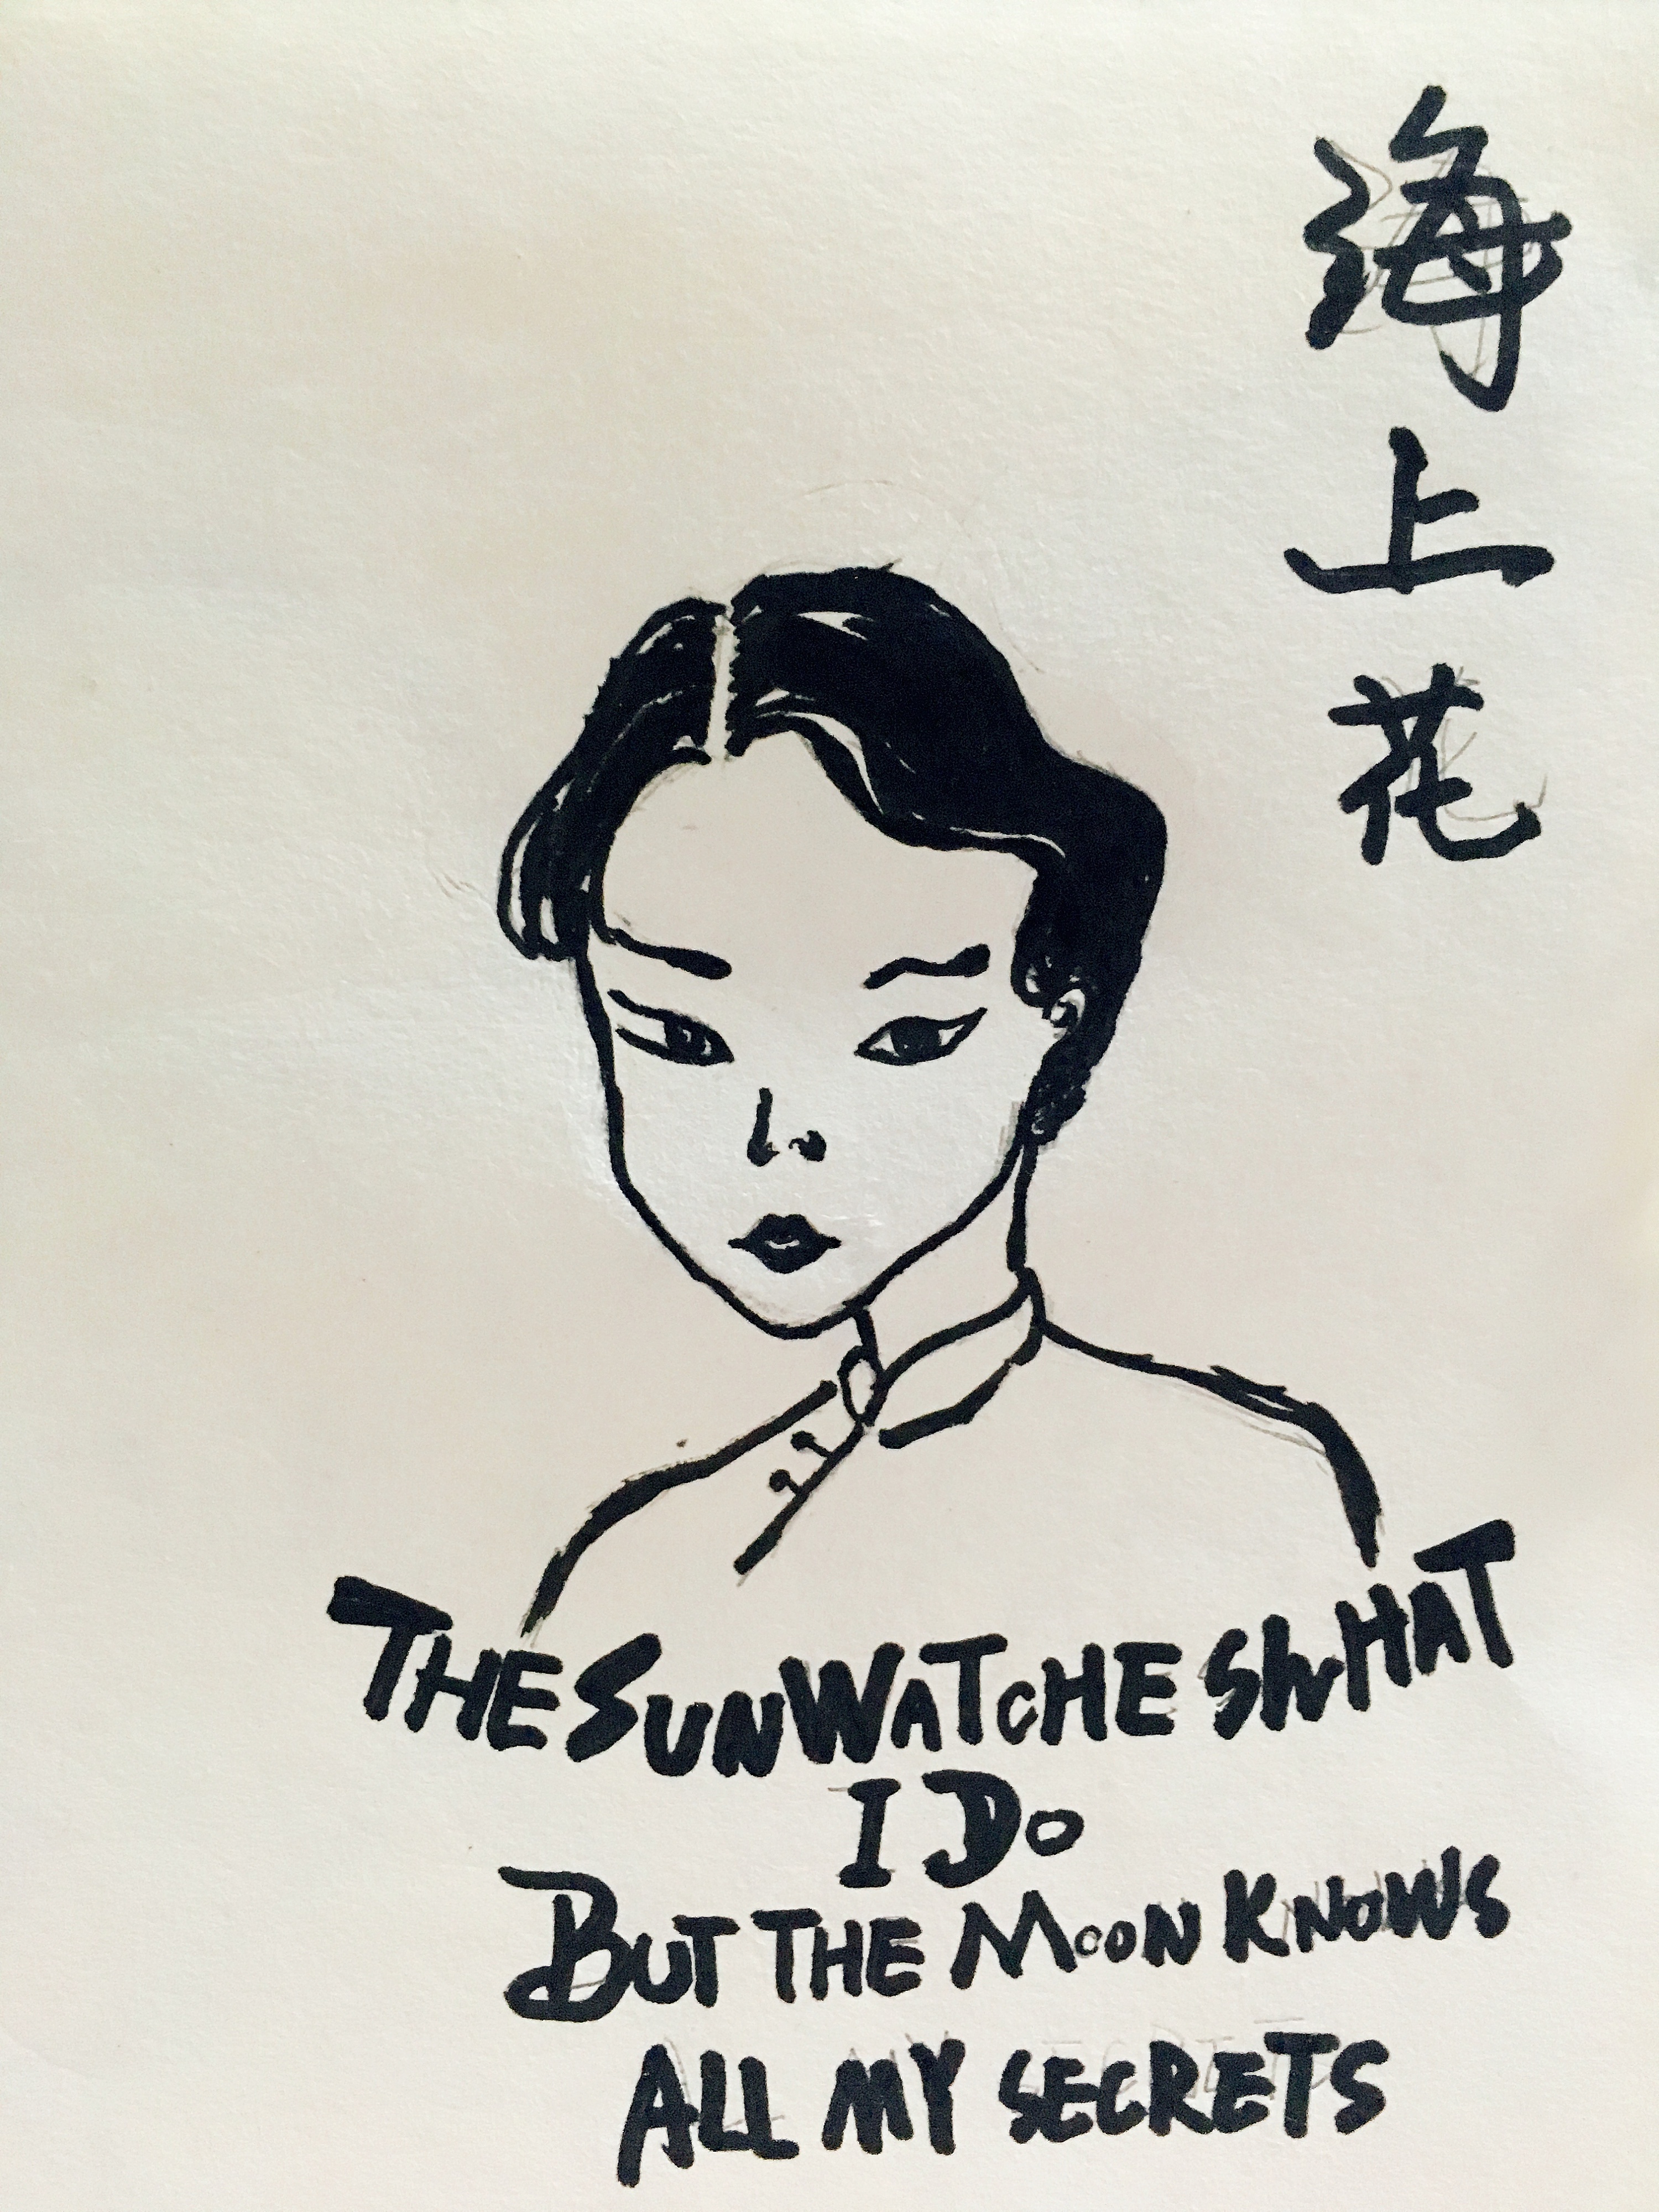 海上花
THE SUN WATCHES WHAT
I DO
BUT THE MOON KNOWS
ALL MY SECRETS